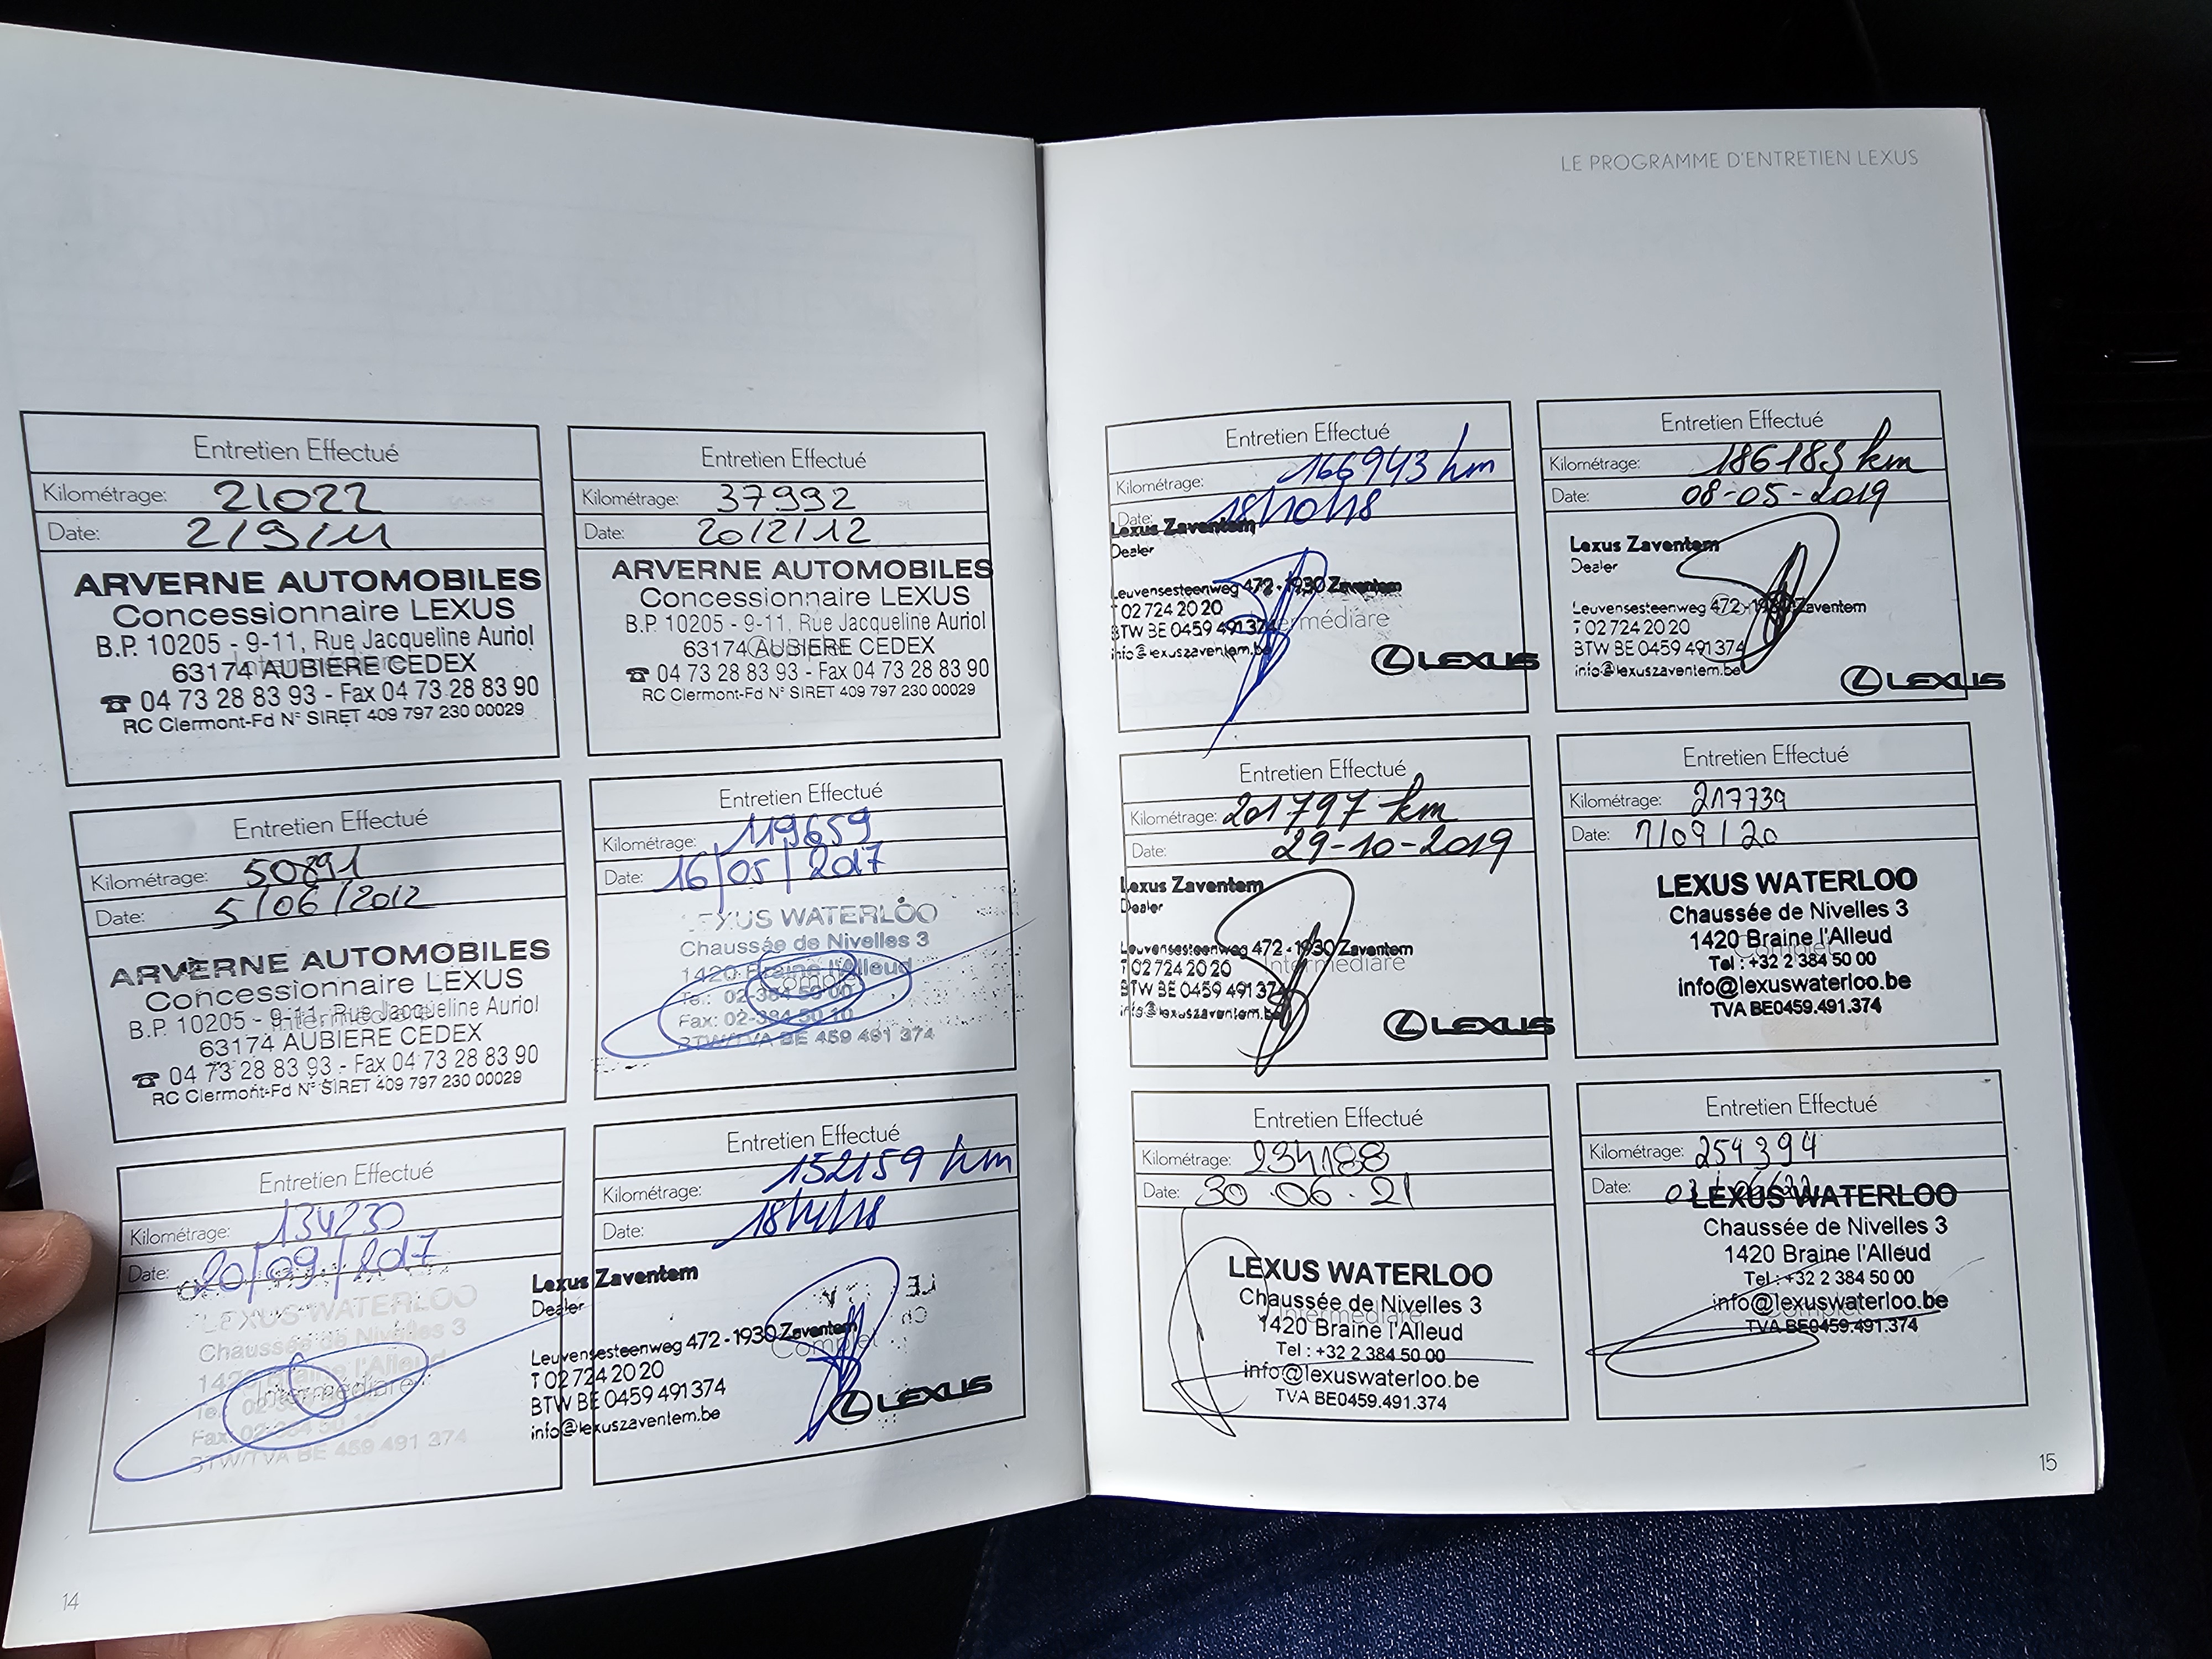 Entretien Effectué
Kilométrage: 21022
Date: 2/9/11
ARVERNE AUTOMOBILES
Concessionnaire LEXUS
B.P. 10205 - 9-11, Rue Jacqueline Auriol
63174 AUBIERE CEDEX
☎ 04 73 28 83 93 - Fax 04 73 28 83 90
RC Clermont-Fd N° SIRET 409 797 230 00029
Entretien Effectué
Kilométrage: 37992
Date: 20/2/12
ARVERNE AUTOMOBILES
Concessionnaire LEXUS
B.P. 10205 - 9-11, Rue Jacqueline Auriol
63174 AUBIERE CEDEX
☎ 04 73 28 83 90 - Fax 04 73 28 83 90
RC Clermont-Fd N° SIRET 409 797 230 00029
Entretien Effectué
Kilométrage: 50891
Date: 5/06/2012
ARVERNE AUTOMOBILES
Concessionnaire LEXUS
B.P. 10205 - 9-11, Rue Jacqueline Auriol
63174 AUBIERE CEDEX
☎ 04 73 28 83 93 - Fax 04 73 28 83 90
RC Clermont-Fd N° SIRET 409 797 230 00029
Entretien Effectué
Kilométrage: 119659
Date: 16/05/2017
LEXUS WATERLOO
Chaussée de Nivelles 3
1420 Braine l'Alleud
Complet
Tel.: 02-384 50 00
Fax: 02-384 50 10
BTW/TVA BE 459 491 374
Entretien Effectué
Kilométrage: 134230
Date: 20/09/2017
LEXUS WATERLOO
Chaussée de Nivelles 3
1420 Braine l'Alleud
Intermédiare
Fax: 02-384 50 10
BTW/TVA BE 459 491 374
Entretien Effectué
Kilométrage: 152159 km
Date: 18/4/18
Lexus Zaventem
Dealer
Leuvensesteenweg 472 - 1930 Zaventem
Complet
T 02 724 20 20
BTW BE 0459 491 374
info@lexuszaventem.be
LEXUS
14
LE PROGRAMME D'ENTRETIEN LEXUS
Entretien Effectué
Kilométrage: 166943 km
Date: 18/10/18
Lexus Zaventem
Dealer
Leuvensesteenweg 472 - 1930 Zaventem
T 02 724 20 20
Intermédiare
BTW BE 0459 491 374
info@lexuszaventem.be
LEXUS
Entretien Effectué
Kilométrage: 186183 km
Date: 08-05-2019
Lexus Zaventem
Dealer
Leuvensesteenweg 472 - 1930 Zaventem
T 02 724 20 20
BTW BE 0459 491 374
info@lexuszaventem.be
LEXUS
Entretien Effectué
Kilométrage: 201797 km
Date: 29-10-2019
Lexus Zaventem
Dealer
Leuvensesteenweg 472 - 1930 Zaventem
T 02 724 20 20
Intermédiare
BTW BE 0459 491 374
info@lexuszaventem.be
LEXUS
Entretien Effectué
Kilométrage: 217739
Date: 7/09/20
LEXUS WATERLOO
Chaussée de Nivelles 3
1420 Braine l'Alleud
Complet
Tel : +32 2 384 50 00
info@lexuswaterloo.be
TVA BE0459.491.374
Entretien Effectué
Kilométrage: 234188
Date: 30.06.21
LEXUS WATERLOO
Chaussée de Nivelles 3
Intermédiare
1420 Braine l'Alleud
Tel : +32 2 384 50 00
info@lexuswaterloo.be
TVA BE0459.491.374
Entretien Effectué
Kilométrage: 254394
Date:
LEXUS WATERLOO
Chaussée de Nivelles 3
1420 Braine l'Alleud
Tel : +32 2 384 50 00
info@lexuswaterloo.be
Complet
TVA BE0459.491.374
15